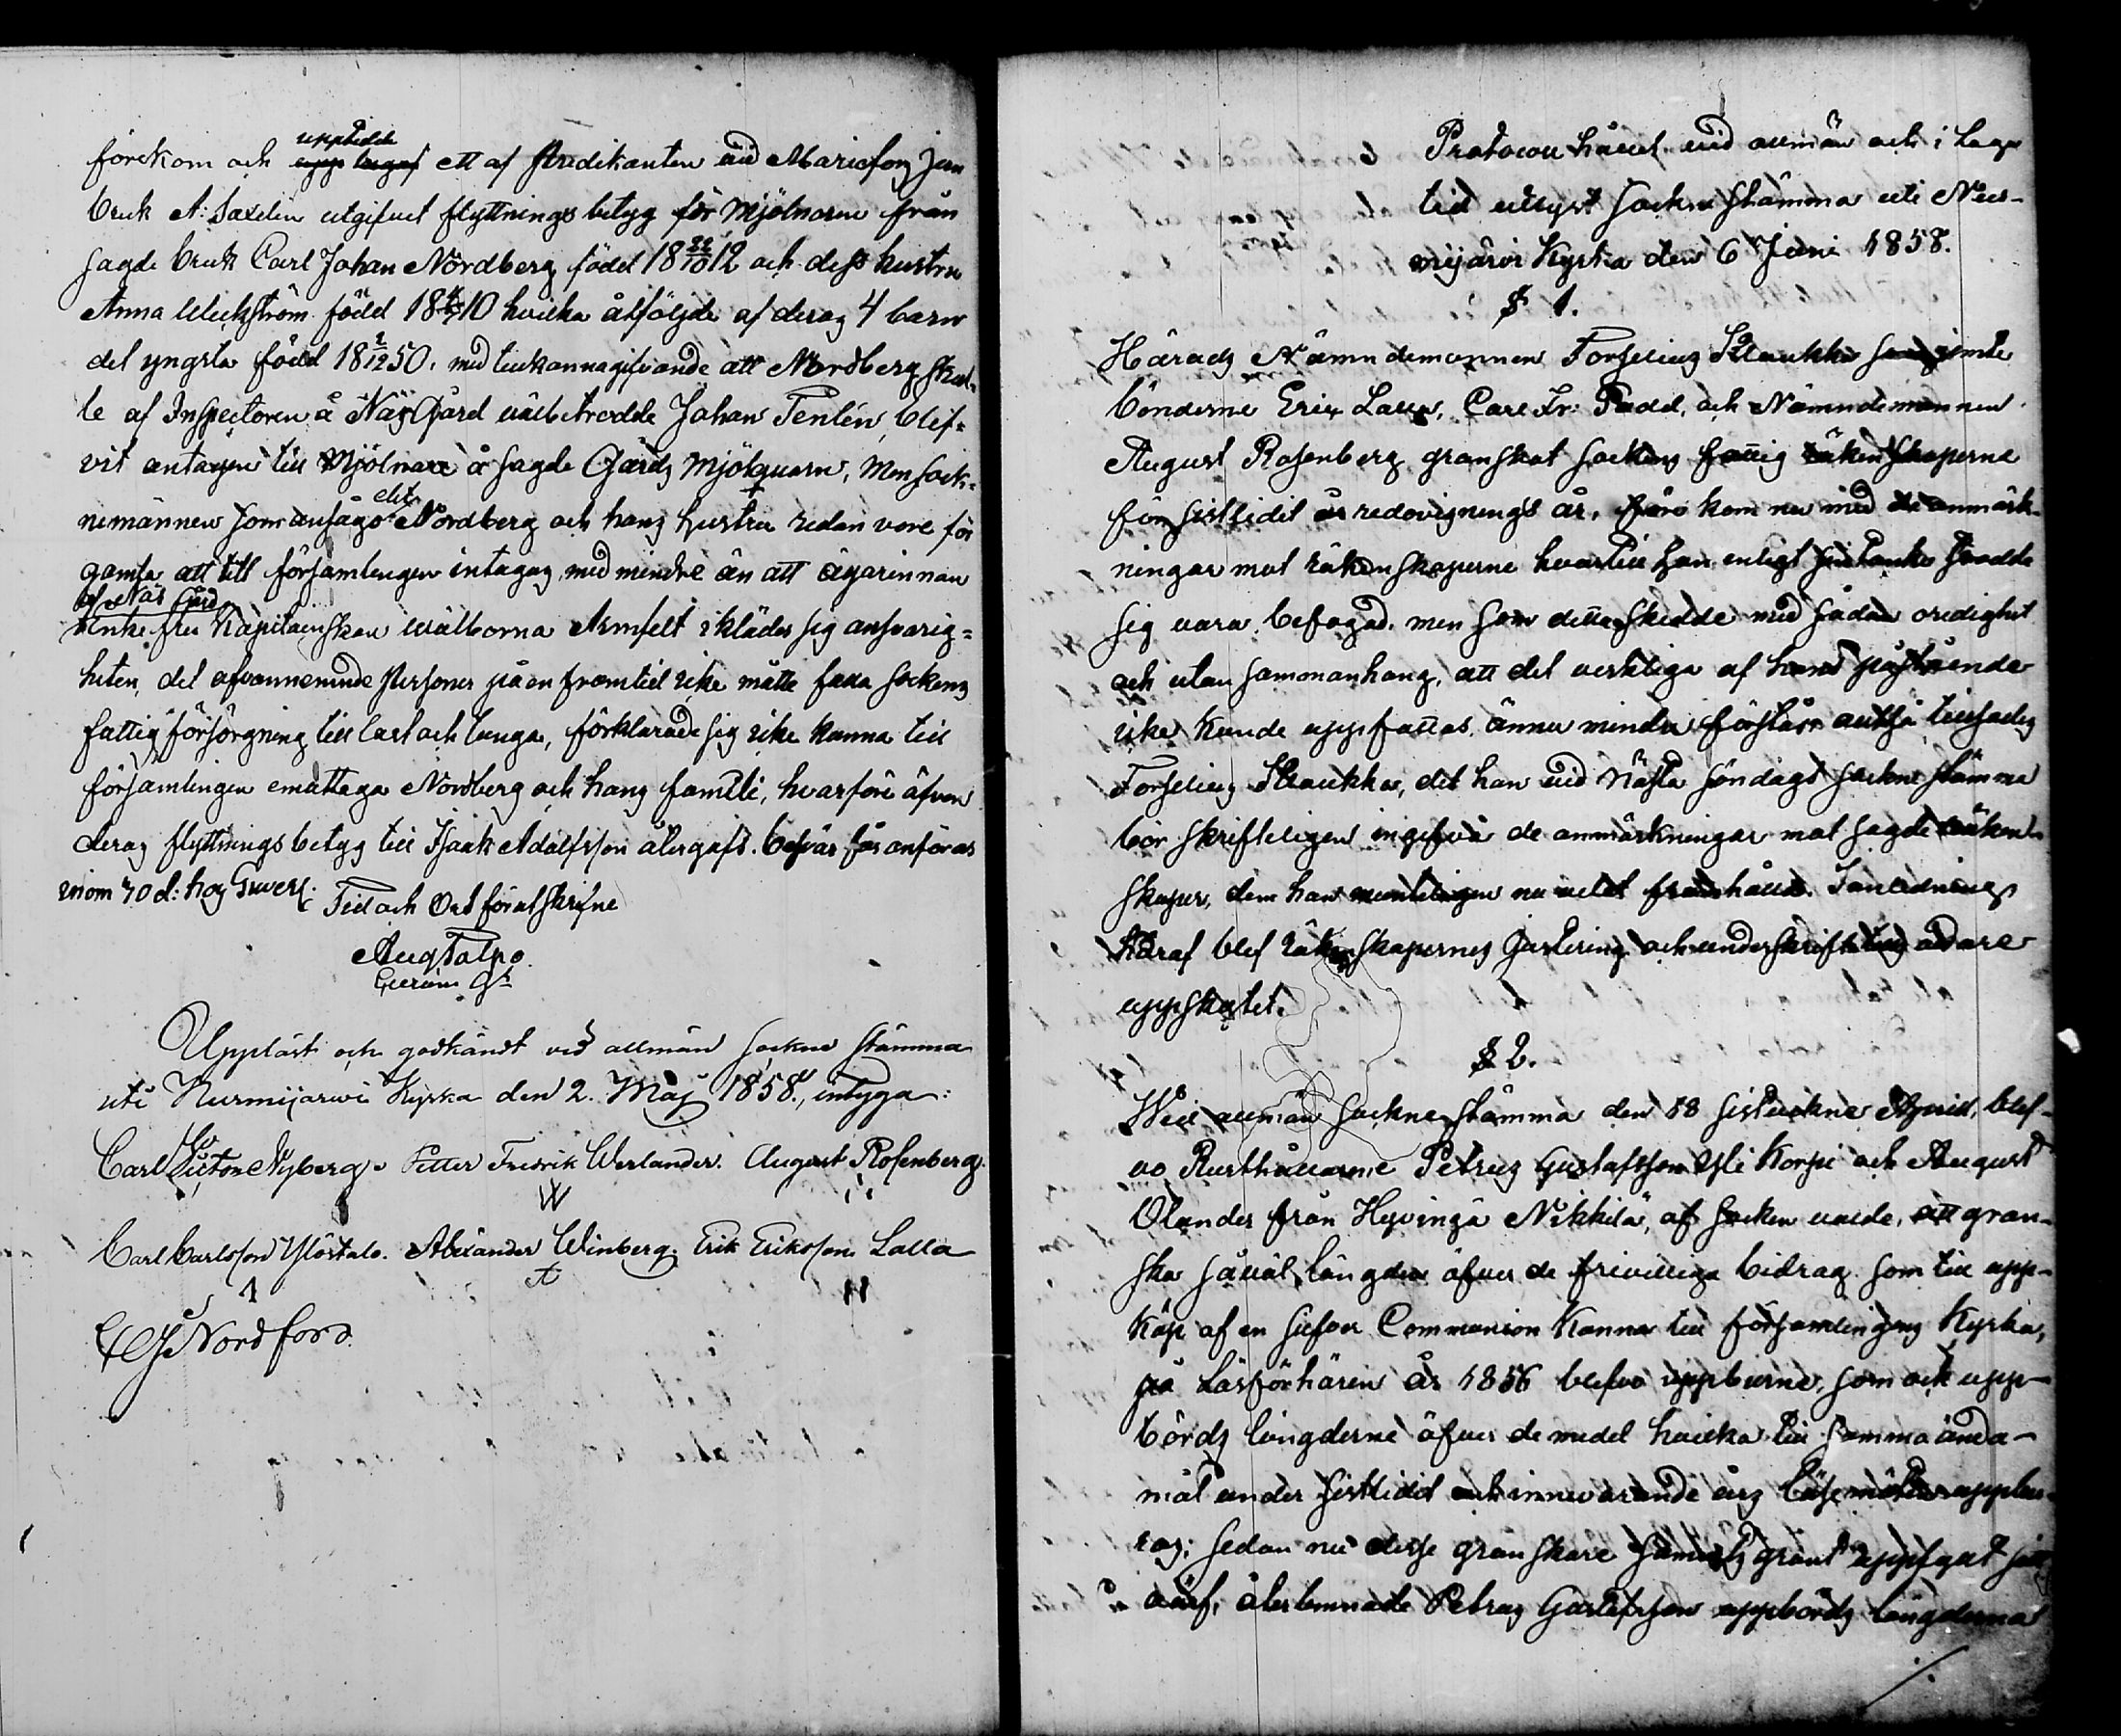 upptedde
förekom och upp togs ett af Predikanten vid Mariefors Jern
bruk A: Saxelin utgifvet flyttnings betyg för Mjölnaren från
sagde bruk Carl Johan Nordberg född 18 22/10 12 och dess hustru
Anna Weckström född 18 10 hvilka åtföljde af deras 4 barn
det yngsta född 18 2/12 50, med tillkännagifvande att Nordberg skul-
le af Inspectoren å Näs Gård välbetrodde Johan Tenlén, blif-
vit antagen till Mjölnare å sagde Gårds Mjölquarn, Men sock-
nemännen som ansågo det Nordberg och hans hustru redan vore för
gamla att till församlingen intagas, med mindre än att ägarinnan
af Näs Gård
Enke fru Kapitenskan wälborna Armfelt ikläder sig ansvarig-
heten, det ofvannemnde personer på en framtid icke måtte falla sockens
fattigförsörgning till last och tunga, förklarade sig icke kunna till
församlingen emottaga Nordberg och hans familie, hvarföre äfven
deras flyttningsbetyg till Isaak Adolfsson återgafs. besvär får anföras
inom 30 d: hos Guvern:
Tid och Ort förutskrifne
Aug Talpo.
Uppläst och godkändt vid allmän Sockne stämma
uti Nurmijärwi Kyrka den 2. Maj 1858., intyga:
Carl Victor Nyberg. Petter Fredrik Werlander. August Rosenberg.
Carl Carlsson Ylöstalo. Alexander Winberg. Erik Eriksson Lalla
A
Nordfors.
Protocoll hållit vid allmän och i Laga
tid utlyst Sockne stämma uti Nur-
mijärvi Kyrka den 6 Juni 1858.
§ 1.
Härads Nämndemannen Forselius Klaukka som jemte
bönderne Eric Lalla, Carl Fr: Padd, och Nämndemannen
August Rosenberg granskat sockens fattig räkenskaperne
för sistlidit år redovisnings år, före kom nu med de anmärk-
ningar mot räkenskaperne hvartill han enligt sin tanke trodde
sig vara befogad, men som detta skedde med sådan oredighet
och utan sammanhang, att det verkliga af hans påstående
icke kunde uppfattas, ännu mindre förstås altså tillsades
Forselius Klaukka, det han vid nästa söndags sockne stämma
bör skrifteligen ingifva de anmärkningar mot sagde räken-
skaper, dem han munteligen nu velat framhålla. I anledning
häraf blef räkenskapernes Justering och underskrift widare
uppskutet.
§ 2.
Wid allmän Sockne stämma den 18 sistlidne April, blef-
vo Rusthållarne Petrus Gustafsson Yli Korpi och August
Olander från Hyvingä Nikkilä, af Socken valde, att gran-
ska såväl längden öfver de frivilliga bidrag som till upp-
köp af en silfver Communion Kanna till församlingens Kyrka,
på Läsförhören år 1856 blefvo uppburne, som ock upp-
börds längderne öfver de medel hvilka till samma ända-
mål under sistlidit och innevarande års Läsemöten uppbu-
ros; Sedan nu desse granskare
återlemnade Petrus Gustafsson uppbörds längderna